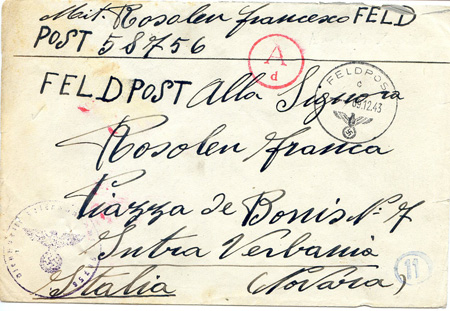 Mit. Rosolen Francesco FELD
POST 58756
A
d
FELDPOST
c
09.12.43
FELDPOST Alla Signora
Rosolen Franca
Piazza de Bonis N° 7
Intra Verbania
Italia (Novara)
11